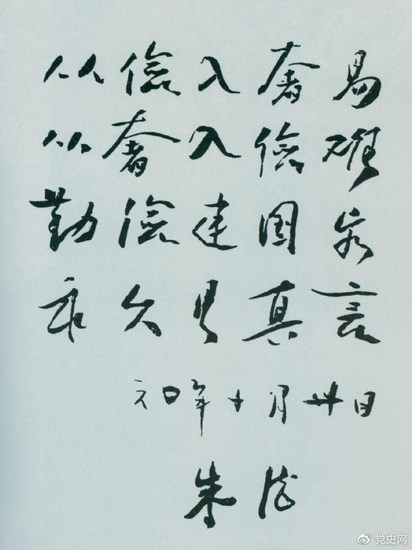 从俭入奢易
从奢入俭难
勤俭建国家
永久是真言
六〇年十月廿日
朱德
党史网